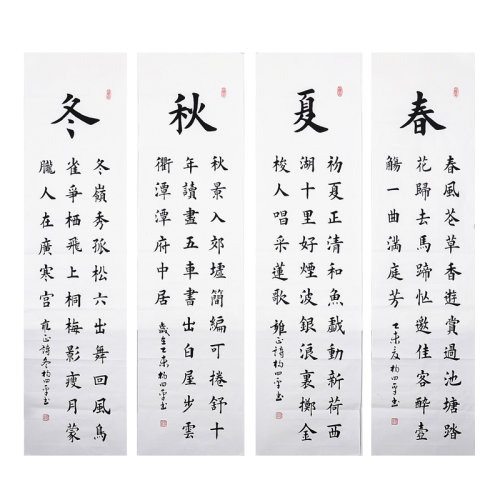 春
春風花草香遊賞過池塘踏
花歸去馬蹄忙邀佳客醉壺
觴一曲滿庭芳
夏
初夏正清和魚戲動新荷西
湖十里好煙波銀浪裏擲金
梭人唱采蓮歌
秋
秋景入郊墟簡編可捲舒十
年讀盡五車書出白屋步雲
衢潭潭府中居
冬
冬嶺秀孤松六出舞回風鳥
雀爭栖飛上桐梅影瘦月朦
朧人在廣寒宮